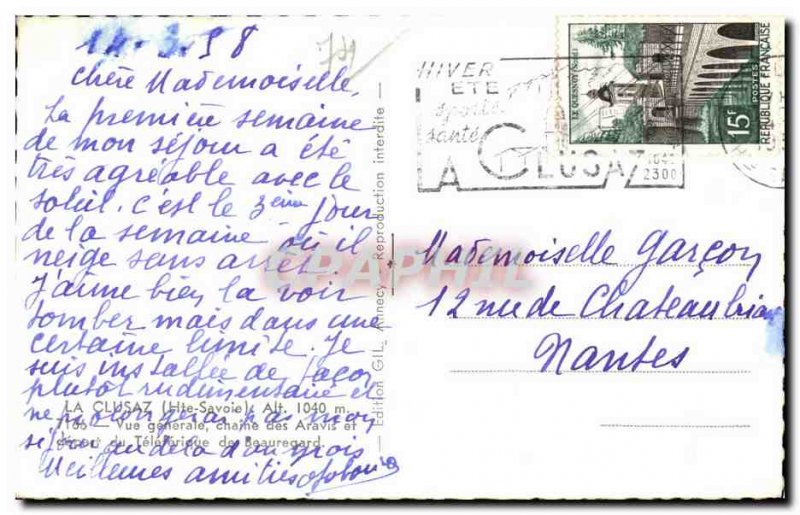 14.3.58
74
Chère Mademoiselle,
La première semaine
de mon séjour a été
très agréable avec le
soleil. C'est le 3ème jour
de la semaine où il
neige sans arrêt.
J'aime bien la voir
tomber mais dans une
certaine limite. Je
suis installée de façon
plutôt rudimentaire et
ne prolongerai pas mon
séjour au delà d'un mois
Meilleures amitiés
LA CLUSAZ (Hte-Savoie) Alt. 1040 m.
7166 — Vue générale, chaîne des Aravis et
départ du Téléférique de Beauregard.
Edition GIL, Annecy - Reproduction interdite —
HIVER
ETE
sports
santé
LA CLUSAZ
1040
2300
LE QUESNOY (NORD)
15F
POSTES
REPUBLIQUE FRANÇAISE
CPAPHIL
Mademoiselle Garçon
12 rue de Chateaubriand
Nantes